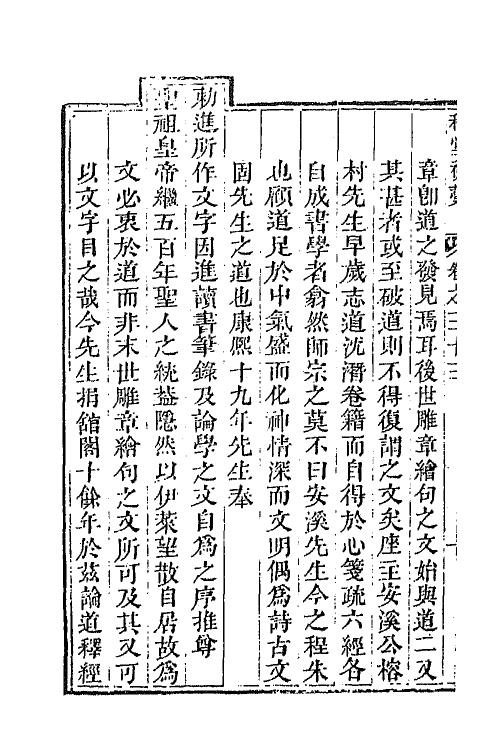 章卽道之發見焉耳後世雕章繪句之文始與道二又
其甚者或至破道則不得復謂之文矣座主安溪公榕
村先生早歲志道沈潛卷籍而自得於心箋疏六經各
自成書學者翕然師宗之莫不曰安溪先生今之程朱
也顧道足於中氣盛而化神情深而文明偶爲詩古文
固先生之道也康熙十九年先生奉
勅進所作文字因進讀書筆錄及論學之文自爲之序推尊
聖祖皇帝繼五百年聖人之統葢隱然以伊萊望散自居故爲
文必衷於道而非末世雕章繪句之文所可及其又可
以文字目之哉今先生捐館閣十餘年於茲論道釋經